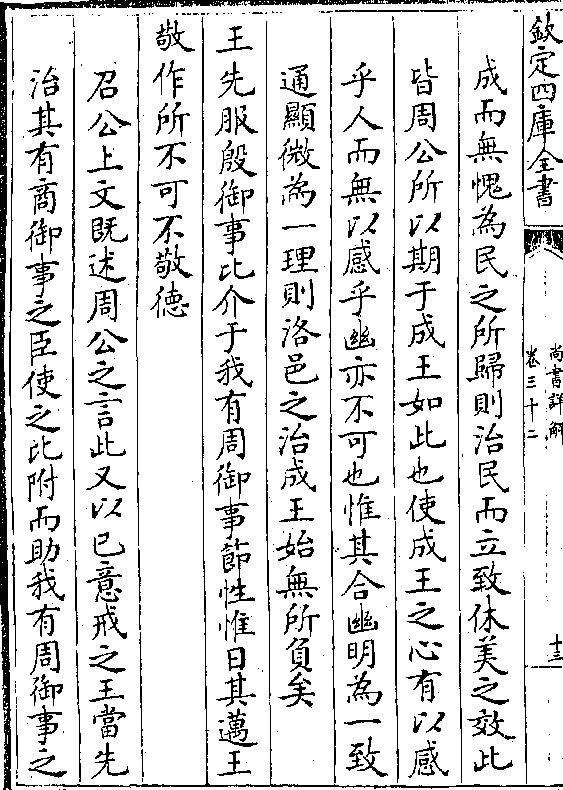 欽定四庫全書
尚書詳解
卷三十二
十三
成而無愧為民之所歸則治民而立致休美之效此
皆周公所以期于成王如此也使成王之心有以感
乎人而無以感乎幽亦不可也惟其合幽明為一致
通顯微為一理則洛邑之治成王始無所負矣
王先服殷御事比介于我有周御事節性惟日其邁王
敬作所不可不敬德
召公上文既述周公之言此又以已意戒之王當先
治其有商御事之臣使之比附而助我有周御事之